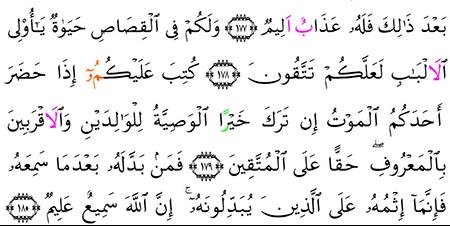 بَعْدَ ذَٰلِكَ فَلَهُۥ عَذَابٌ اَلِيمٌ ١٧٧ وَلَكُمْ فِے اِ۬لْقِصَاصِ حَيَوٰةٌ يَٰٓأُوْلِے
اِ۬لَالْبَٰبِ لَعَلَّكُمْ تَتَّقُونَۖ ١٧٨ كُتِبَ عَلَيْكُمُۥٓ إِذَا حَضَرَ
أَحَدَكُمُ اُ۬لْمَوْتُ إِن تَرَكَ خَيْراً اِ۬لْوَصِيَّةُ لِلْوَٰلِدَيْنِ وَالَاقْرَبِينَ
بِالْمَعْرُوفِۖ حَقّاً عَلَى اَ۬لْمُتَّقِينَۖ ١٧٩ فَمَنۢ بَدَّلَهُۥ بَعْدَمَا سَمِعَهُۥ
فَإِنَّمَآ إِثْمُهُۥ عَلَى اَ۬لذِينَ يُبَدِّلُونَهُۥٓۖ إِنَّ اَ۬للَّهَ سَمِيعٌ عَلِيمٌ ١٨٠